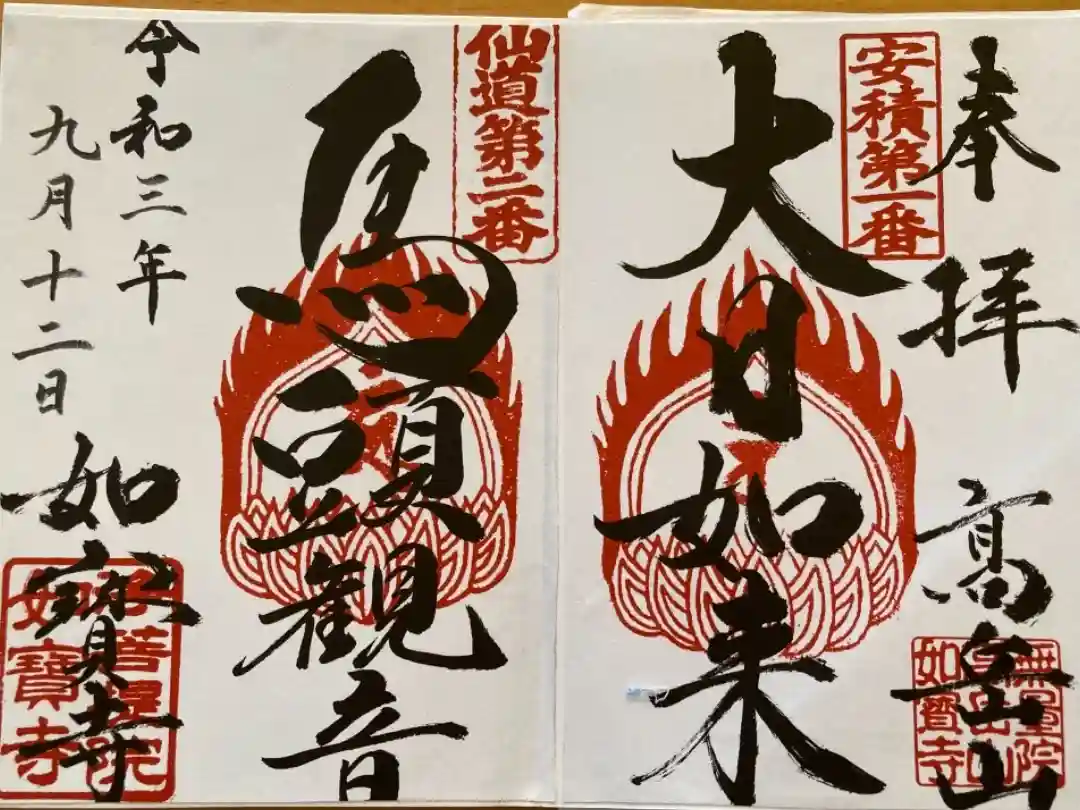 奉拝
高岳山
安積第一番
大日如来
仙道第二番
馬頭観音
令和三年
九月十二日
如寳寺
如寳寺
如寳寺